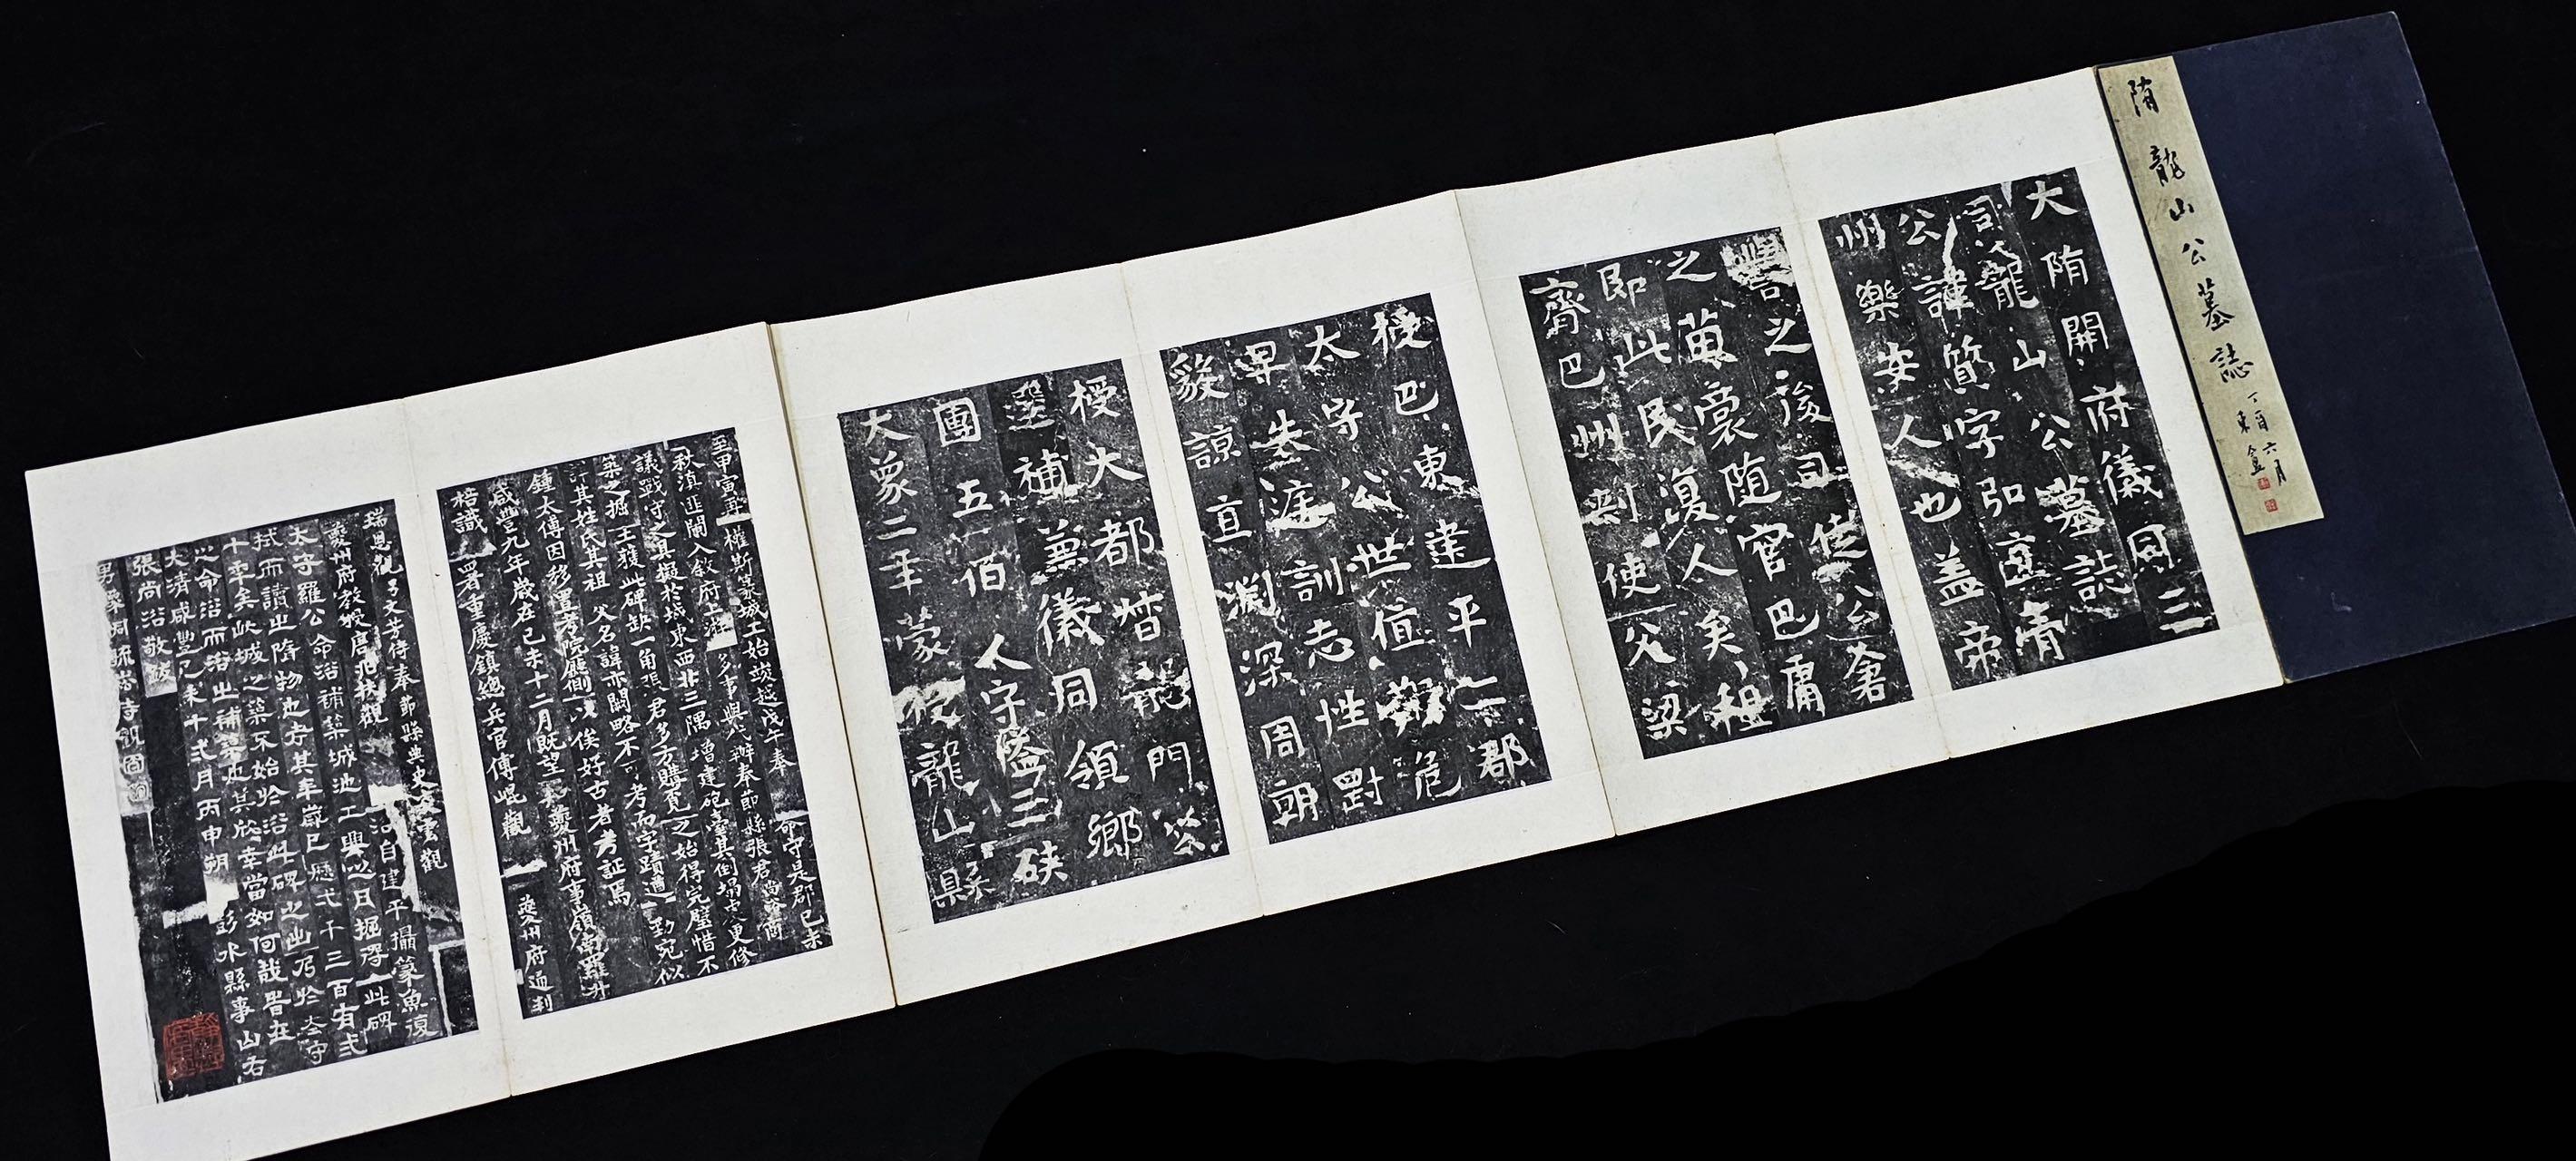 隋龍山公墓誌
丁酉六月
東盦
大隋開府儀同三
司龍山公墓誌
公諱質字弘直青
州樂安人也蓋帝
嚳之後司徒公倉
之苗裔隨官巴庸
即此民復人矣祖
齊巴州刺使父梁
授巴東建平二郡
太守公世值艱危
早失庭訓志性對
毅諒直淵深周朝
授大都督龍門公
選補兼儀同領鄉
團五佰人守隘三硤
大象二年蒙授龍山縣
命守是郡己未
秋滇匪闌入敘府上游多事與代辦奉節縣張君尚溶商
議戰守之具擬於城東西北三隅增建砲臺其倒塌處更修
築之掘土獲此碑缺一角張君多方購覓之始得完璧惜不
計其姓氏其祖父名諱亦闕略不可考而字蹟遒勁宛似
鍾太傅因移置考院廳側以俟好古者考証焉
咸豐九年歲在己未十二月既望知夔州府事嶺南羅升
梧識 署重慶鎮總兵官傅崐觀 夔州府通判
瑞恩觀 子文芳侍奉節縣典史
夔州府教授
太守羅公命溶補築城池工興以日掘得此碑
拭而讀之隋物也考其年歲已歷弌千三百有弍
十年矣此城之築不始於溶此碑之出乃於太守
以命溶而溶之補築也其欣幸當如何哉昔在
大清咸豐己未十弍月丙申朔 彭水縣事山右
張尚溶敬跋